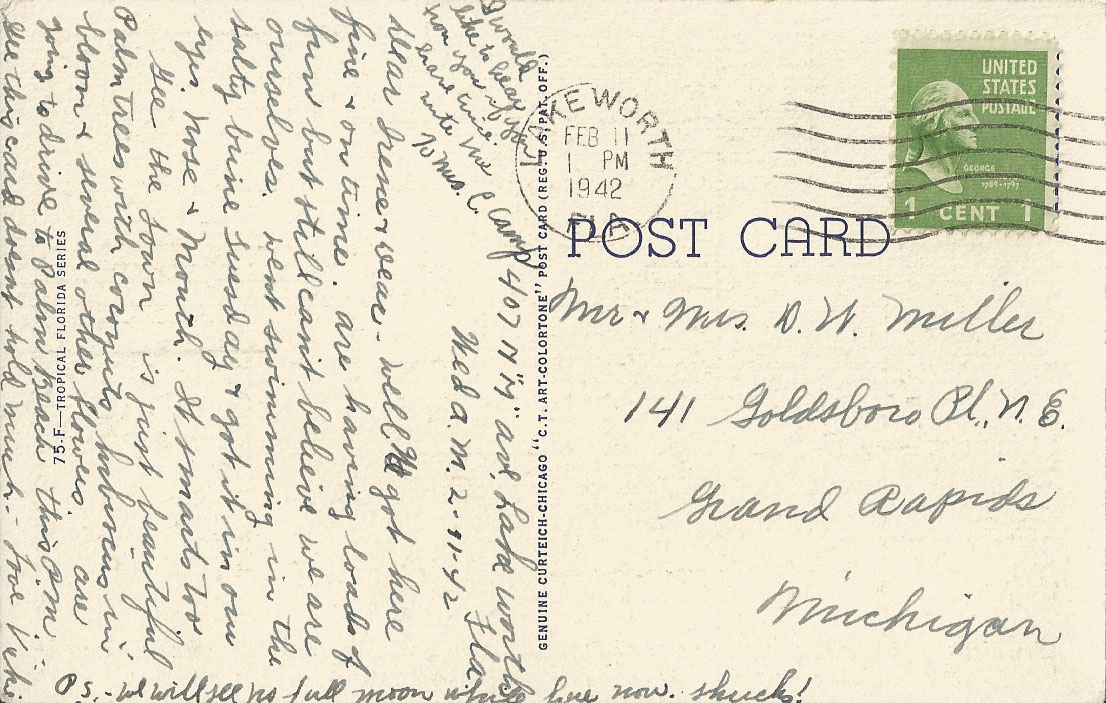 I would
like to hear
from you if you
have time
write me
% Mrs. C. Camp 407 N "M" ave. Lake Worth
Fla.
Wed a.m. 2-11-42
dear Irene & dear - Well. We got here
fine & on time. are having loads of
fun but still can't believe we are
ourselves. Went swimming in the
salty brine Tuesday & got it in our
eyes, nose & mouth. It smarts too
Gee the town is just beautiful
Palm trees with coconuts, hibiscus in
bloom & several other flowers are
going to drive to Palm Beach this P.M.
Gee this card doesnt hold much - Love
P.S. - we will see no full moon while here now. shucks!
75-F—TROPICAL FLORIDA SERIES
GENUINE CURTEICH-CHICAGO "C.T. ART-COLORTONE" POST CARD (REG. U.S. PAT. OFF.)
LAKE WORTH
FEB 11
1 PM
1942
FLA.
UNITED
STATES
POSTAGE
GEORGE
1789-1797
1 CENT 1
POST CARD
Mr & Mrs. D. W. Miller
141 Goldsboro Pl., N.E.
Grand Rapids
Michigan